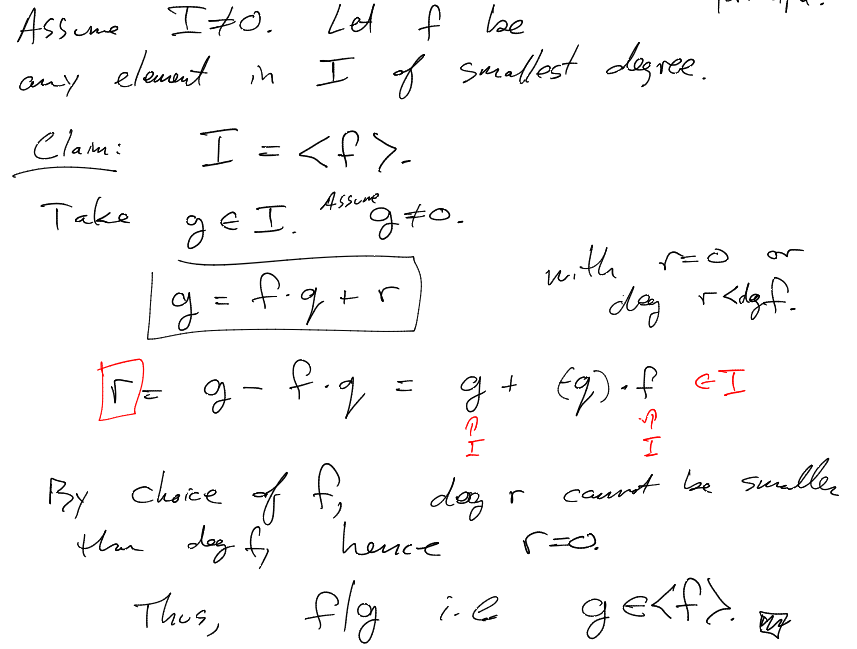 Assume I≠0. Let f be
any element in I of smallest degree.
Claim: I = <f>.
Take g ∈ I. Assume g≠0.
g = f·q + r
with r=0 or
deg r<deg f.
r = g - f·q = g + (-q)·f ∈ I
↑ ↑
I I
By choice of f, deg r cannot be smaller
than deg f, hence r=0.
Thus, f/g i.e g ∈<f>.